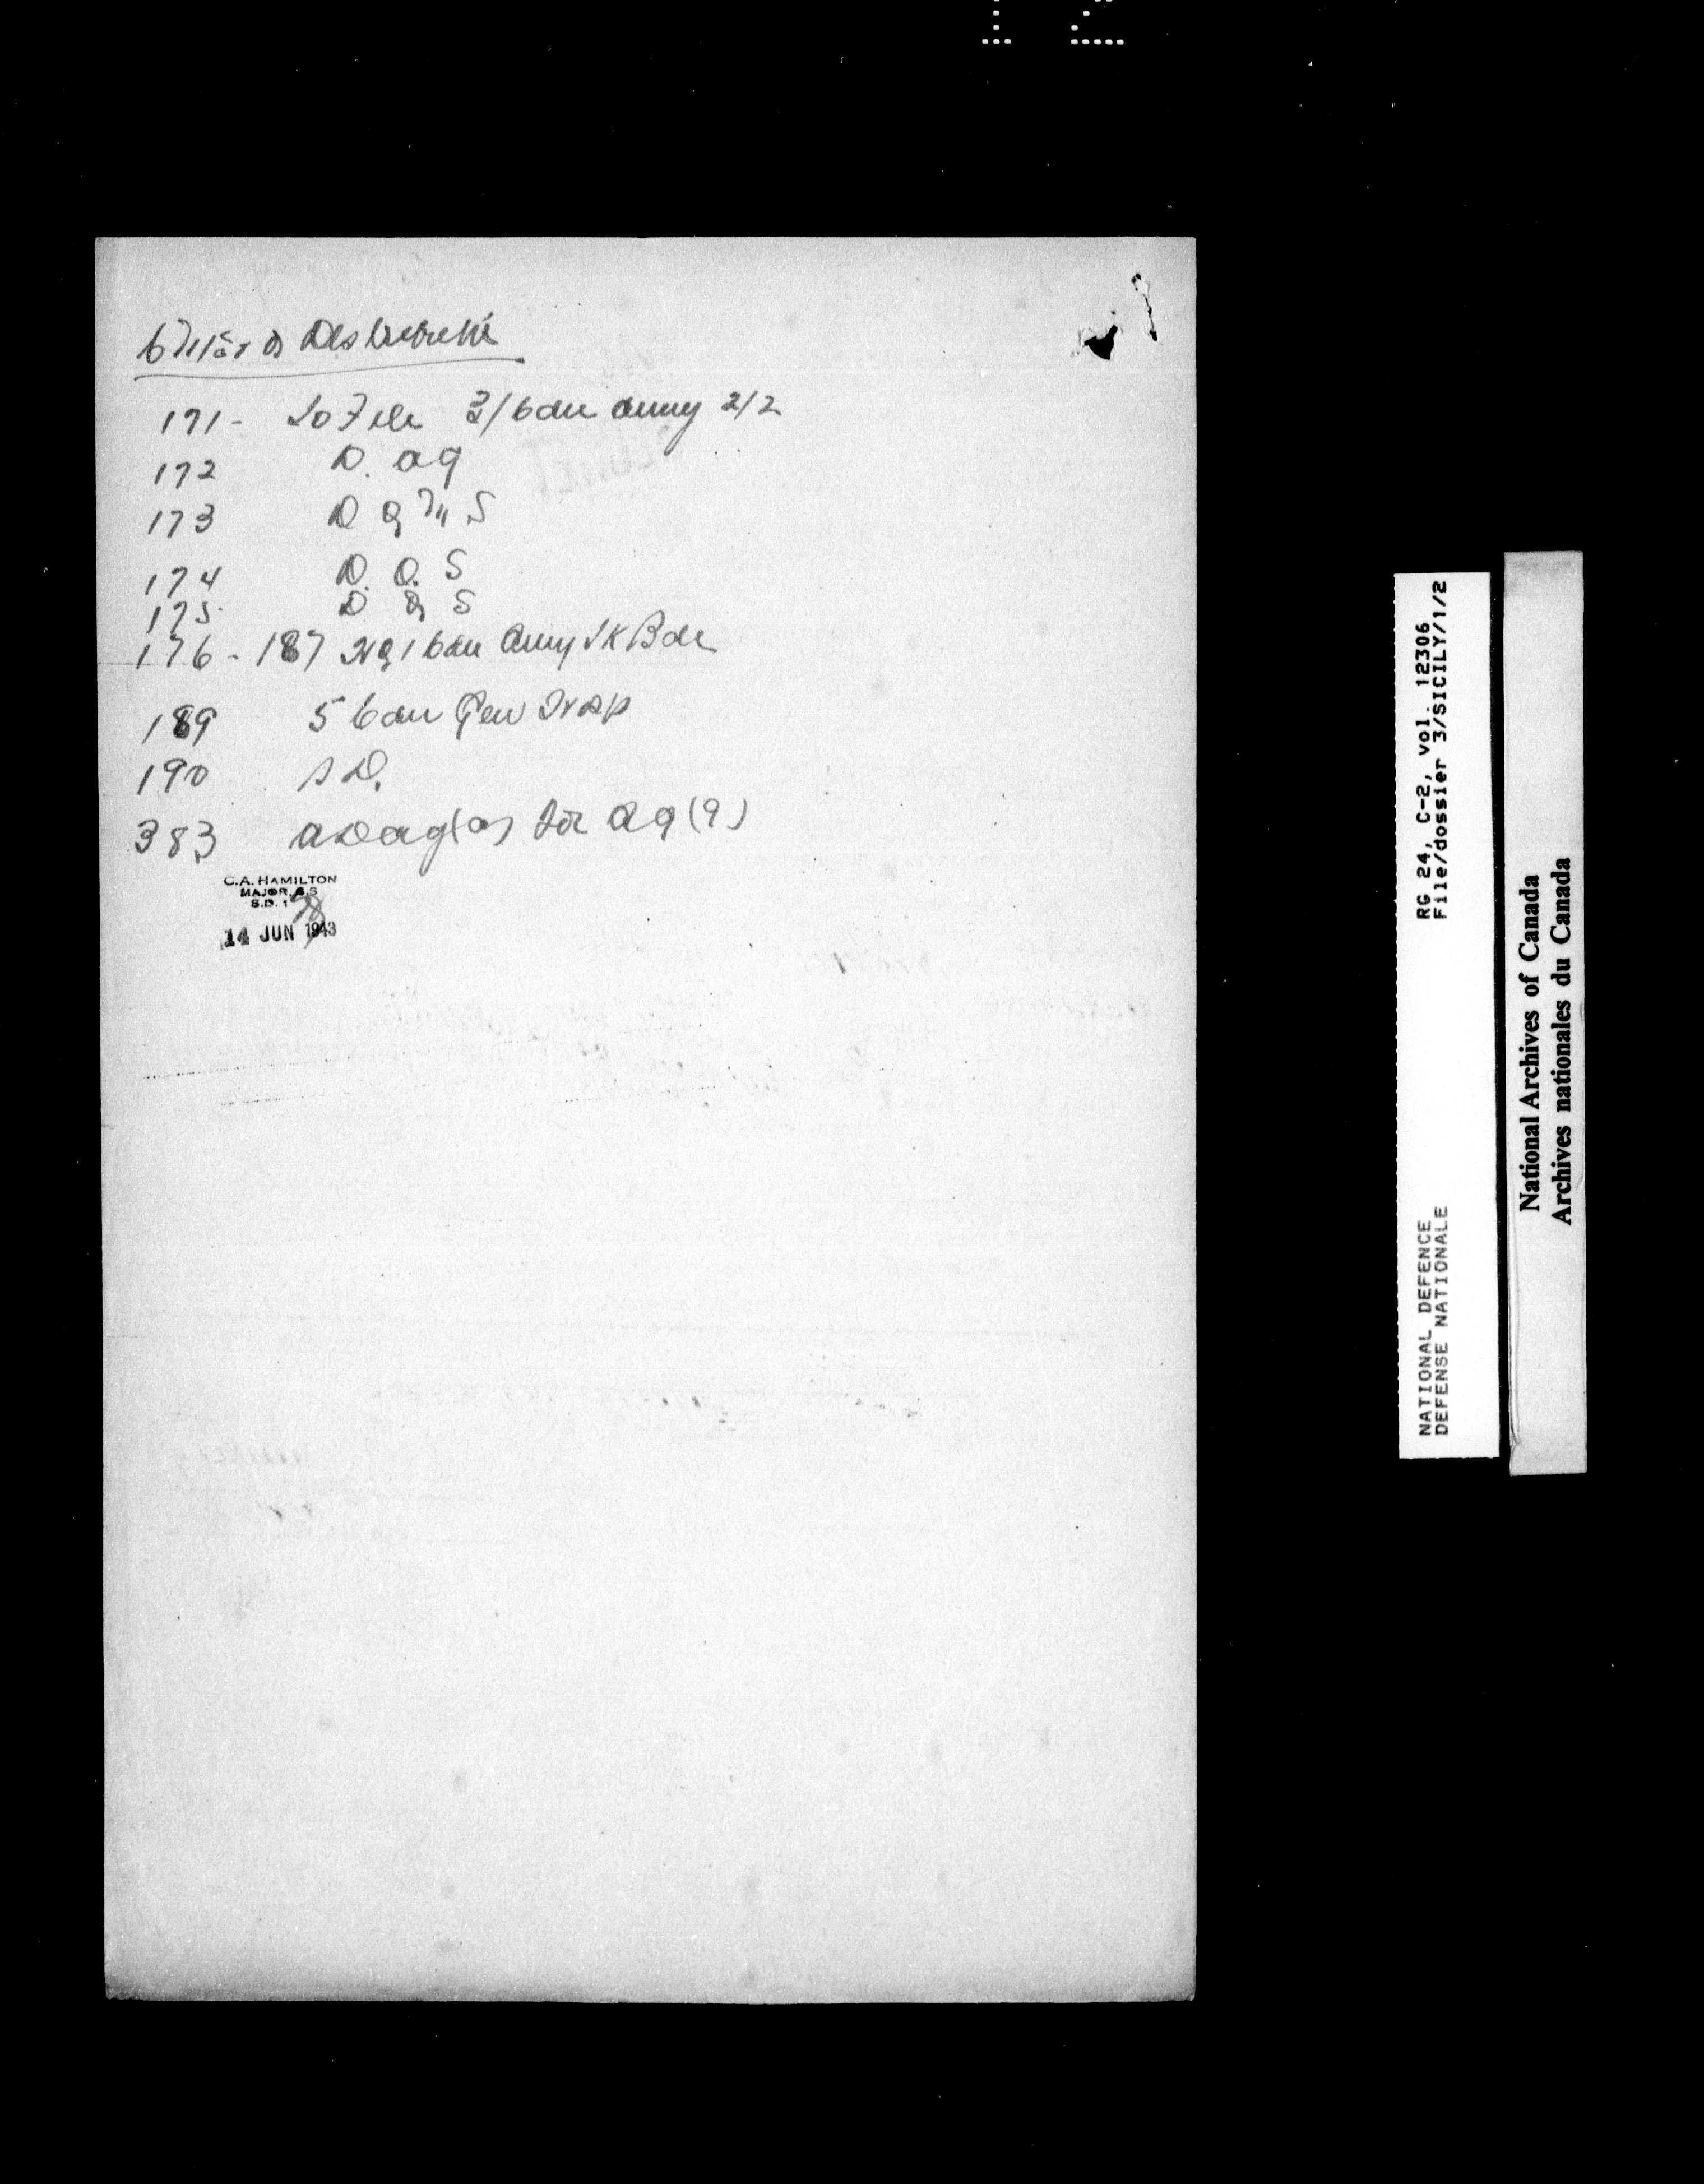 CMHQ's Distribution
171 - To File 3/Cdn Army 2/2
172 D. A G
173 D Q M S
174 D. O. S
175 D S
176 - 187 HQ 1 Cdn Army Tk Bde
189 5 Cdn Gen Hosp
190 S D.
383 for AG (9)
C.A. HAMILTON
MAJOR, G.S
S.D. 1
14 JUN 1943
RG 24, C-2, vol. 12306
File/dossier 3/SICILY/1/2
NATIONAL DEFENCE
DEFENSE NATIONALE
National Archives of Canada
Archives nationales du Canada